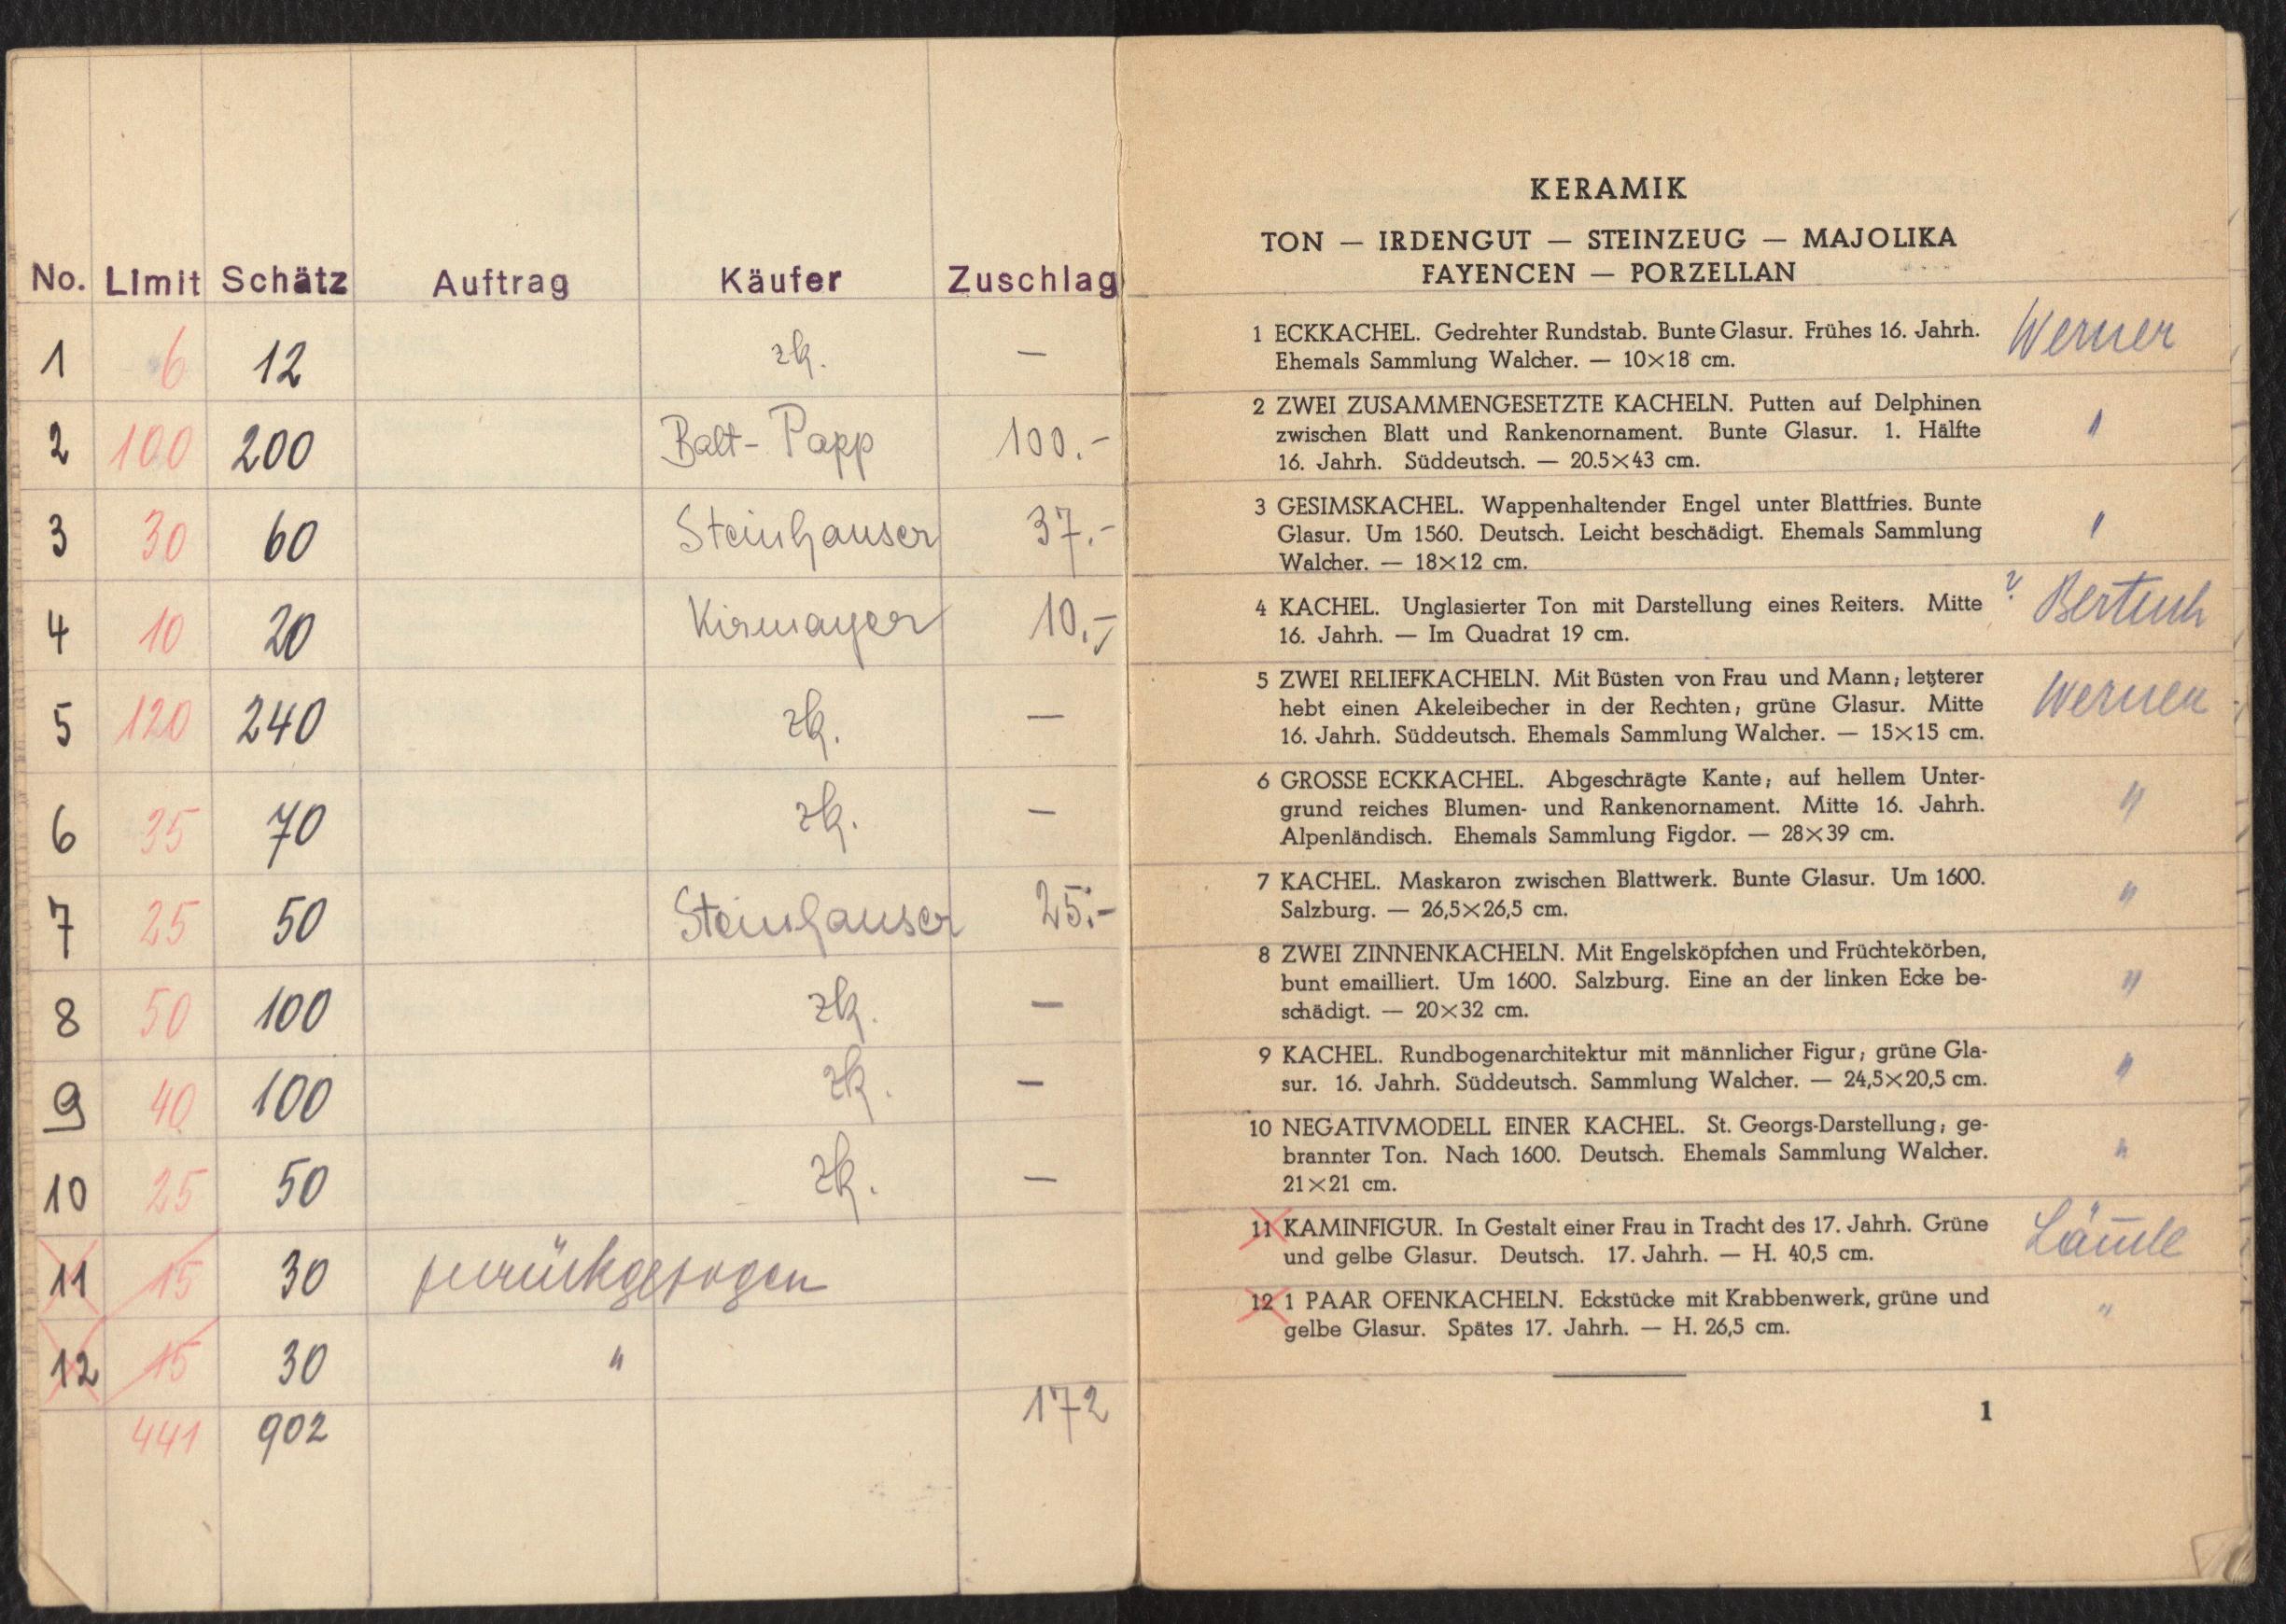 No. Limit Schätz Auftrag Käufer Zuschlag
1 6 12 zk. —
2 100 200 Balt-Papp 100.-
3 30 60 Steinhauser 37.-
4 10 20 Kirmayer 10.-
5 120 240 zk. —
6 35 70 zk. —
7 25 50 Steinhauser 25.-
8 50 100 zk. —
9 40 100 zk. —
10 25 50 zk. —
11 15 30 zurückgezogen
12 15 30 "
441 902 172
KERAMIK
TON — IRDENGUT — STEINZEUG — MAJOLIKA
FAYENCEN — PORZELLAN
1 ECKKACHEL. Gedrehter Rundstab. Bunte Glasur. Frühes 16. Jahrh. Werner
Ehemals Sammlung Walcher. — 10×18 cm.
2 ZWEI ZUSAMMENGESETZTE KACHELN. Putten auf Delphinen
zwischen Blatt und Rankenornament. Bunte Glasur. 1. Hälfte "
16. Jahrh. Süddeutsch. — 20.5×43 cm.
3 GESIMSKACHEL. Wappenhaltender Engel unter Blattfries. Bunte
Glasur. Um 1560. Deutsch. Leicht beschädigt. Ehemals Sammlung "
Walcher. — 18×12 cm.
4 KACHEL. Unglasierter Ton mit Darstellung eines Reiters. Mitte ?
16. Jahrh. — Im Quadrat 19 cm.
5 ZWEI RELIEFKACHELN. Mit Büsten von Frau und Mann; letzterer
hebt einen Akeleibecher in der Rechten; grüne Glasur. Mitte Werner
16. Jahrh. Süddeutsch. Ehemals Sammlung Walcher. — 15×15 cm.
6 GROSSE ECKKACHEL. Abgeschrägte Kante; auf hellem Unter-
grund reiches Blumen- und Rankenornament. Mitte 16. Jahrh. "
Alpenländisch. Ehemals Sammlung Figdor. — 28×39 cm.
7 KACHEL. Maskaron zwischen Blattwerk. Bunte Glasur. Um 1600. "
Salzburg. — 26,5×26,5 cm.
8 ZWEI ZINNENKACHELN. Mit Engelsköpfchen und Früchtekörben,
bunt emailliert. Um 1600. Salzburg. Eine an der linken Ecke be- "
schädigt. — 20×32 cm.
9 KACHEL. Rundbogenarchitektur mit männlicher Figur; grüne Gla- "
sur. 16. Jahrh. Süddeutsch. Sammlung Walcher. — 24,5×20,5 cm.
10 NEGATIVMODELL EINER KACHEL. St. Georgs-Darstellung; ge-
brannter Ton. Nach 1600. Deutsch. Ehemals Sammlung Walcher. "
21×21 cm.
11 KAMINFIGUR. In Gestalt einer Frau in Tracht des 17. Jahrh. Grüne
und gelbe Glasur. Deutsch. 17. Jahrh. — H. 40,5 cm.
12 1 PAAR OFENKACHELN. Eckstücke mit Krabbenwerk, grüne und "
gelbe Glasur. Spätes 17. Jahrh. — H. 26,5 cm.
1